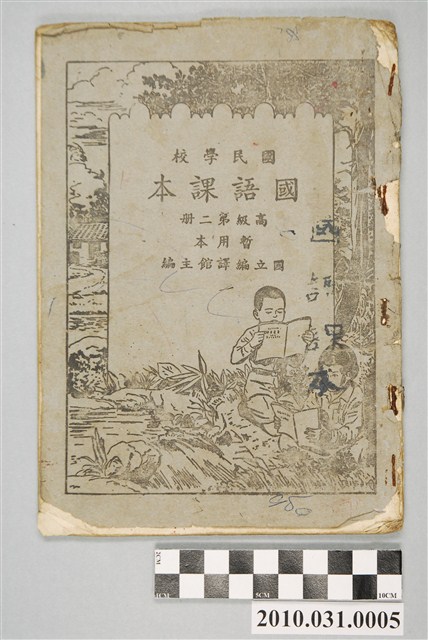 國民學校
國語課本
高級第二冊
暫用本
國立編譯館主編
2CM
1CM 5CM 10CM
2010.031.0005